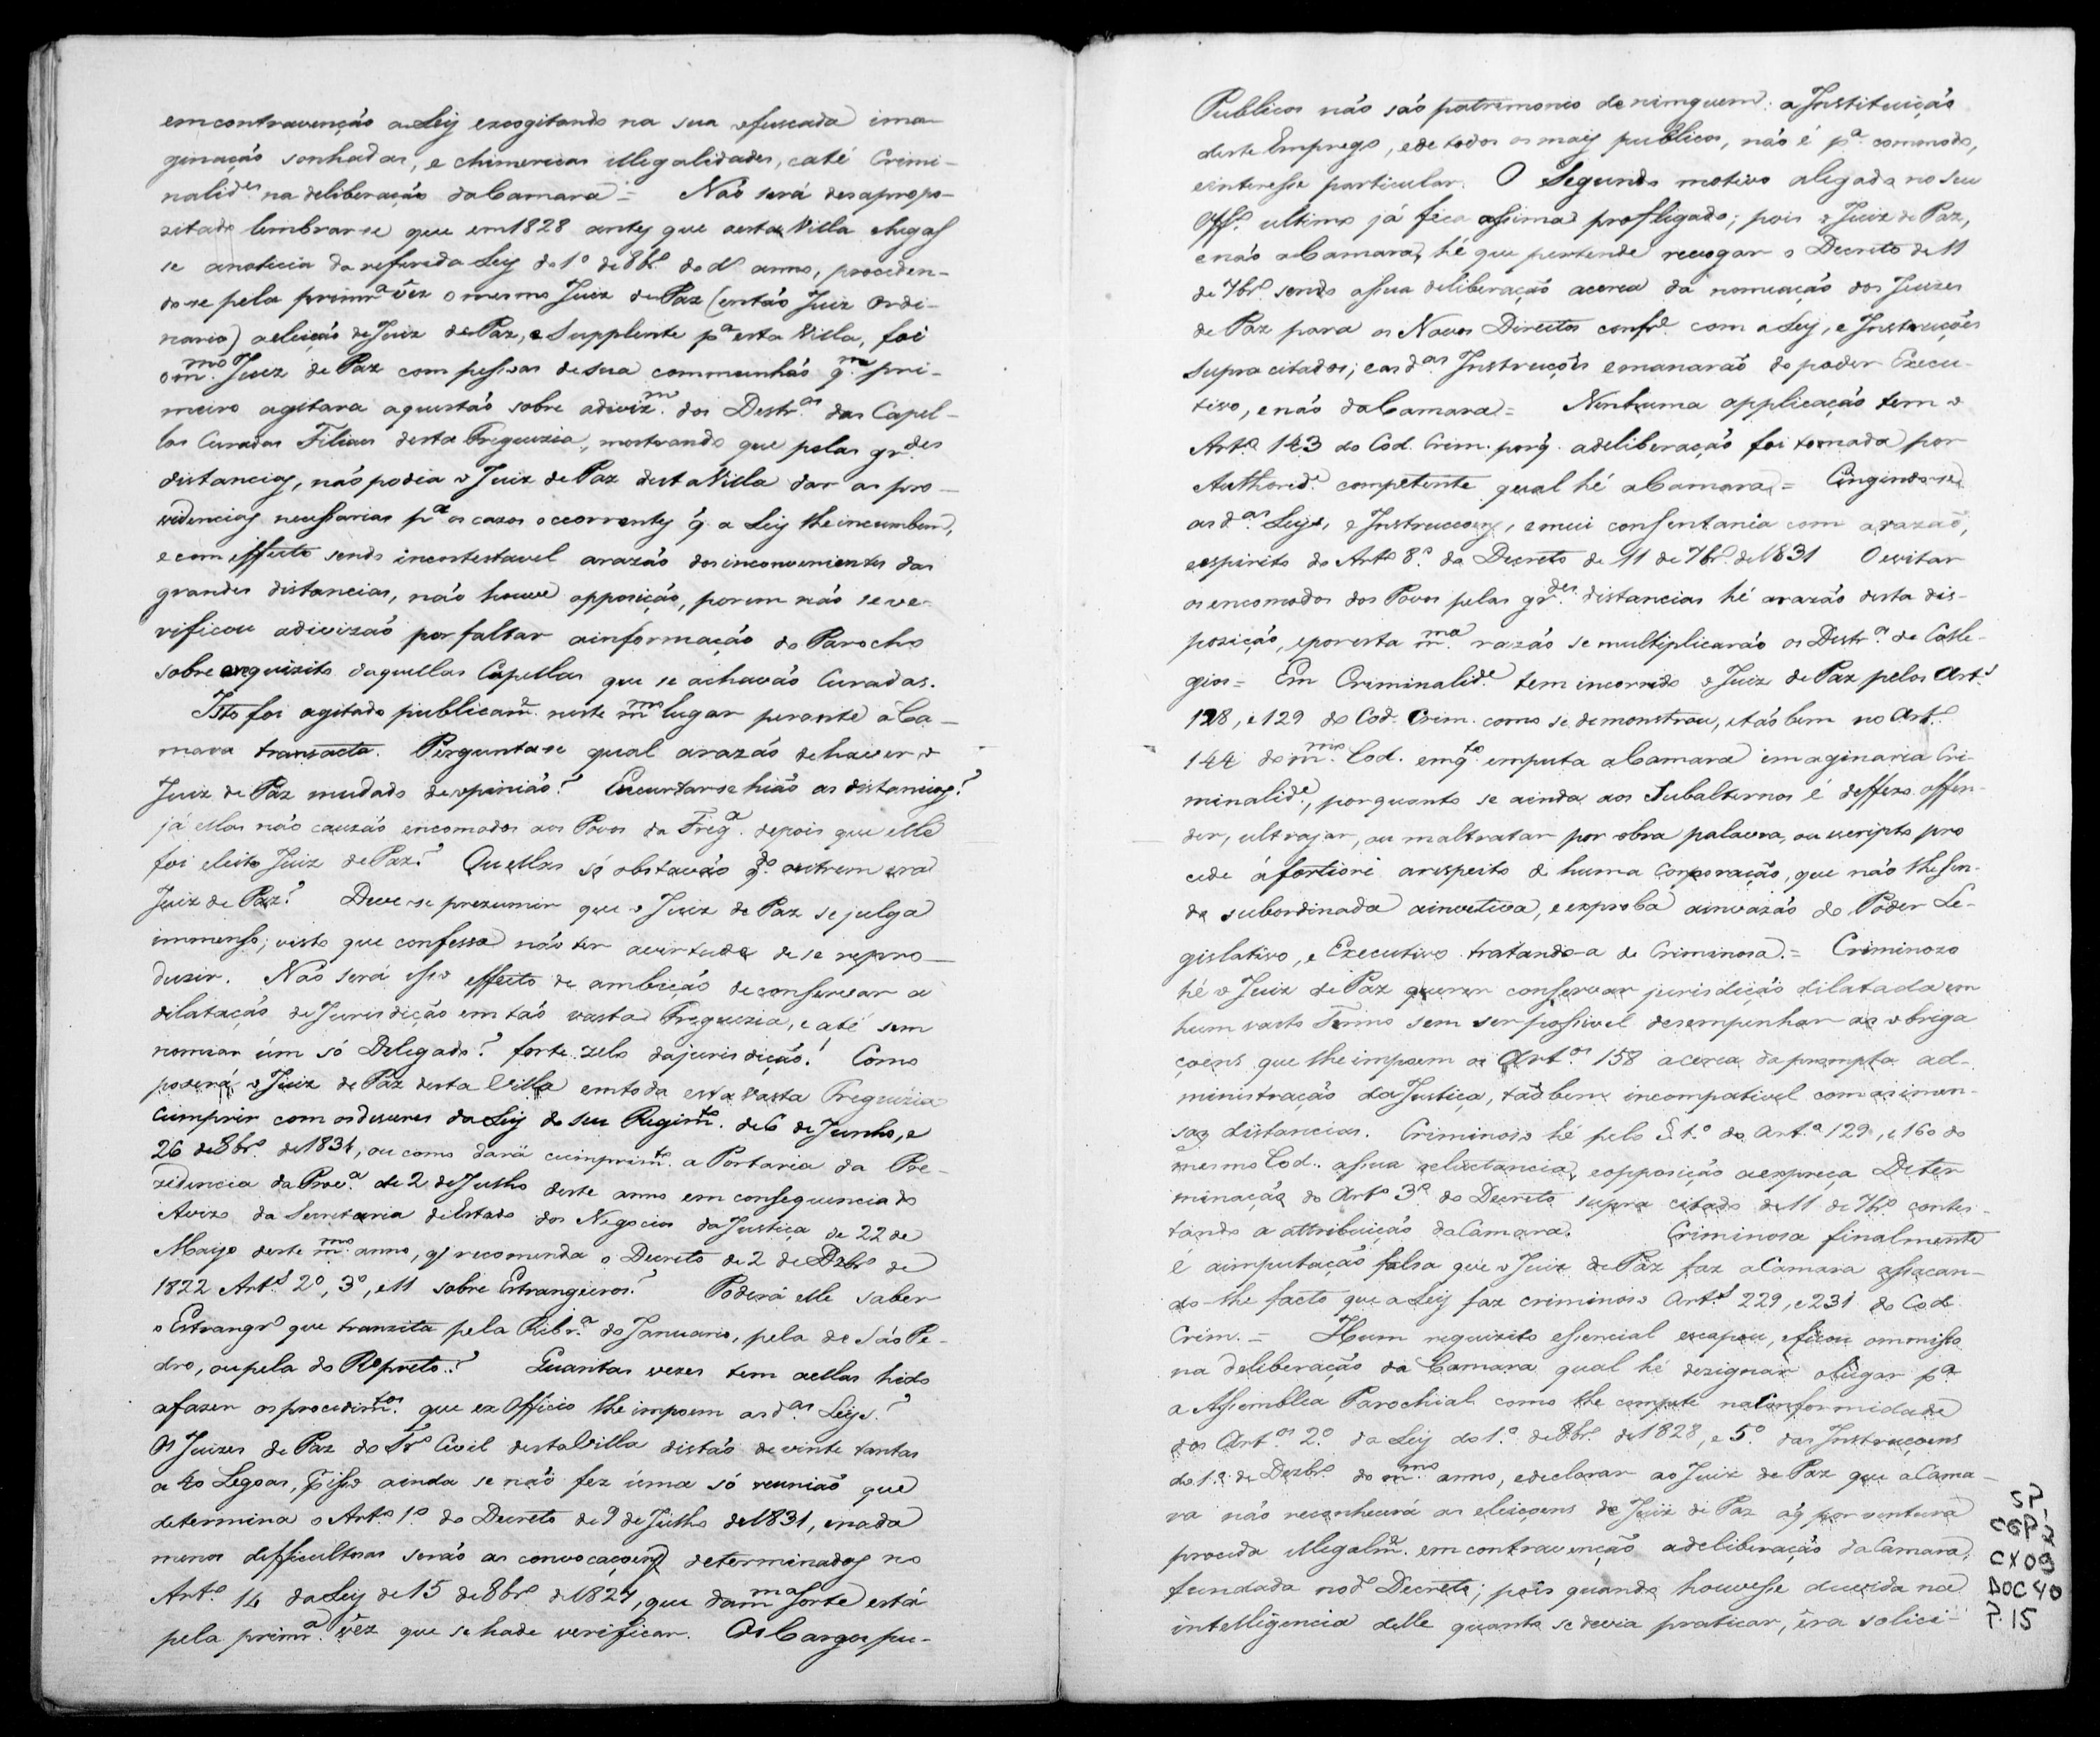 emcontravenção a Ley excogitando na sua ofuscada ima-
ginação sonhadas, e chimericas illegalidades, e até Crimi-
nalid.es na deliberação da Camara = Não será desapropo-
zitado lembrar-se que em 1828 antes que aesta Villa chegas
se anoticia da referida Ley do 1º de 8br.º do dº anno, proceden-
do-se pela primr.ª vez o mesmo Juiz de Paz (então Juiz Ordi-
nario) aeleição de Juiz de Paz, e Supplente pª esta Villa, foi
o m.mo Juiz de Paz com pessoas de sua communhão q.m pri-
meiro agitara aquestão sobre adiviz.m dos Destr.os das Capel-
las Curadas Filiaes desta Freguezia, mostrando que pelas gr.des
distancias, não podia o Juiz de Paz desta Villa dar as pro-
videncias necessarias pª os cazos occorrentes q̃ a Ley lhe incumbem,
e com effeito sendo incontestavel arazão dos inconvenientes das
grandes distancias, não houve opposição, porem não se ve-
rificou adivizão por faltar ainformação do Parocho
sobre orequizito daquellas Capellas que se achavão Curadas.
Isto foi agitado publicam.e neste m.mo lugar perante a Ca-
mara transacta. Pergunta-se qual arazão de haver o
Juiz de Paz mudado de opinião? Encurtarse hião as distancias?
já ellas não cauzão encomodos aos Povos da Freg.ª depois que elle
foi eleito Juiz de Paz? Ou ellas só obstavão q.do outrem era
Juiz de Paz? Deve-se prezumir que o Juiz de Paz se julga
immenso; visto que confessa não ter avirtude de se repro-
duzir. Não será isso effeito de ambição de conservar a
dilatação de Jurisdição em tão vasta Freguezia, e até sem
nomear úm só Delegado? forte zelo da jurisdição! Como
poderá o Juiz de Paz desta Villa em toda esta vasta Freguezia
cumprir com os deveres da Ley do seu Regim.to de 6 de Junho, e
26 de 8br.º de 1831, ou como dará cumprim.to a Portaria da Pre-
zidencia da Prov.ª de 2 de Julho deste anno em consequencia do
Avizo da Secretaria de Estado dos Negocios da Justiça de 22 de
Mayo deste m.mo anno, q̃ recomenda o Decreto de 2 de Dzbr.º de
1822 Art.s 2º, 3º, e 11 sobre Estrangeiros? Poderá elle saber
o Estrangr.º que tranzita pela Ribr.ª do Januario, pela de São Pe-
dro, ou pela do Rº preto..? Quantas vezes tem aellas hido
afazer os procedim.tos que ex Officio lhe impoem as d.as Leys?
Os Juizes de Paz do Trº Civil desta Villa distão de vinte tantas
a 40 Legoas, p̃ isso ainda se não fez úma só reunião que
determina o Art.º 1º do Decreto de 9 de Julho de 1831, enada
menos difficultosas serão as convocaçoens determinadas no
Art.º 14 da Ley de 15 de 8br.º de 1827, que da m.ma sorte está
pela primr.ª vez que se hade verificar. Os Cargos pu-
Publicos não são patrimonio de nimguem: a Instituição
deste Emprego, e de todos os mais publicos, não é pª commodo,
e interesse particular. O Segundo motivo alegado no seu
Off.º ultimo já fica assima profligado; pois o Juiz de Paz,
e não a Camara, hé que pertende revogar o Decreto de 11
de 7br.º sendo asua deliberação acerca da nomeação dos Juizes
de Paz para os Novos Directos confr.e com a Ley, e Instrucções
supra citados; e as d.as Instrucções emanarão do poder Execu-
tivo, enão da Camara = Nenhuma applicação tem o
Art.º 143 do Cod. Crim. porq̃ adeliberação foi tomada por
Authorid.e competente qual hé a Camara = Cingindo-se
as d.as Leys, e Instrucçoens, emui consentania com arazão,
e espirito do Artº 8º do Decreto de 11 de 7br.º de 1831 O evitar
os encomodos dos Povos pelas gr.des distancias hé arazão desta dis-
pozição, e por esta m.ma razão se multiplicarão os Destr.os de Colle-
gios = Em Criminalid.e tem incorrido o Juiz de Paz pelos Art.s
128, e 129 do Cod. Crim. como se demonstrou, e tão bem no Art.º
144 do m.mo Cod. em q.to emputa a Camara imaginaria Cri-
minalid.e, porquanto se ainda aos Subalternos é deffezo offen-
der, ultrajar, ou maltratar por obra palavra, ou escripto pro
cede áfortiori arespeito de huma Corporação, que não lhe sen-
do subordinada ainvectiva, e exproba ainvazão do Poder Le-
gislativo, e Executivo tratando-a de Criminosa. = Criminozo
hé o Juiz de Paz querer conservar jurisdição dilatada em
hum vasto Termo sem ser possivel desempenhar as obriga
çoens que lhe impoem os Art.os 158 acerca da prompta ad-
ministração da Justiça, tão bem incompativel com as imen-
sas distancias. Criminoso hé pelo § 1.º do art.º 129, e 160 do
mesmo Cod. asua reluctancia, e opposição aexpreça Deter
minação do Artº 3º do Decreto supra citado de 11 de 7br.º contes-
tando a attribuição da Camara. Criminosa finalmente
é aimputação falsa que o Juiz de Paz faz a Camara assacan-
do-lhe facto que a Ley faz criminoso Art.s 229, e 231 do Cod.
Crim. = Hum requizito essencial escapou, e ficou ommisso
na deliberação da Camara qual hé dezignar o lugar pª
a Assemblea Parochial como lhe compete na Conformidade
dos Art.os 2º da Ley do 1.º de 8br.º de 1828, e 5º das Instrucçoens
do 1.º de Dezbr.º do m.mo anno, e declarar ao Juiz de Paz que a Cama-
ra não reconhecerá as eleiçoens de Juiz de Paz aq̃ porventura
proceda illegalm.e em contravenção adeliberação da Camara,
fundada no dº Decreto; pois quando houvesse duvida na
intelligencia delle quanto se devia praticar, era solici-
SP.
CGP.7
CX09
DOC40
P.15